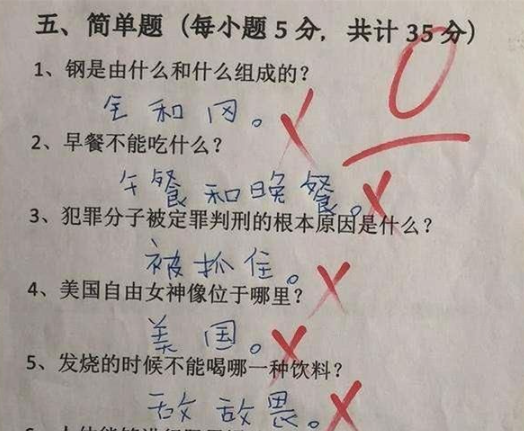 五、简单题（每小题 5 分，共计 35 分）
0
1、钢是由什么和什么组成的？
全和冈。
2、早餐不能吃什么？
午餐和晚餐。
3、犯罪分子被定罪判刑的根本原因是什么？
被抓住。
4、美国自由女神像位于哪里？
美国。
5、发烧的时候不能喝哪一种饮料？
敌敌畏。